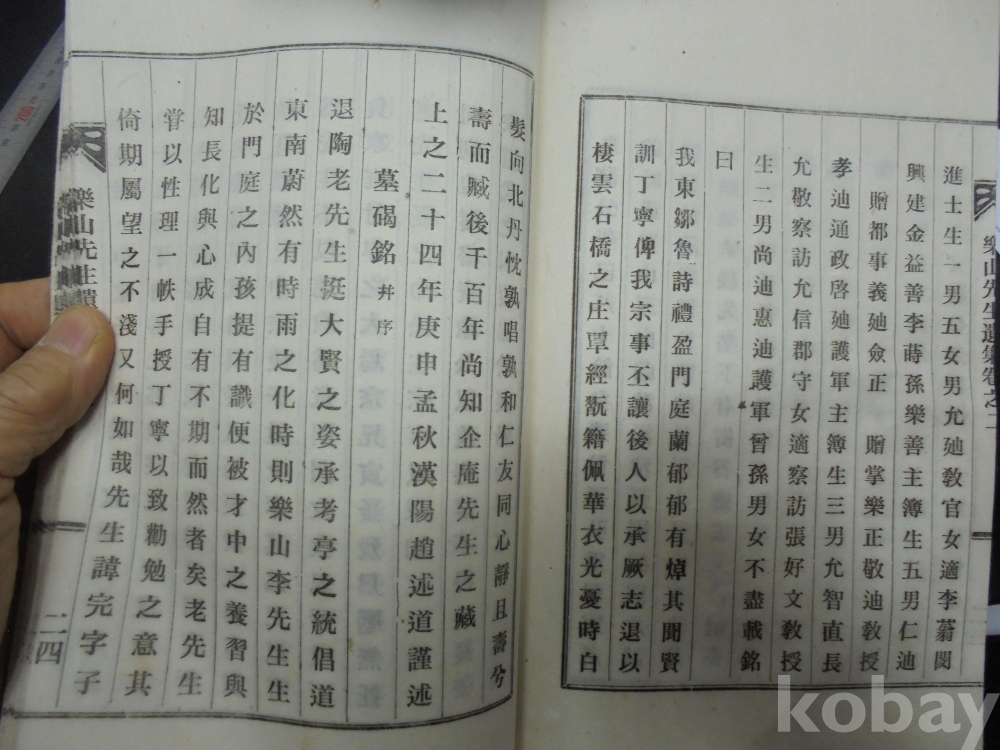 進士生一男五女男允廸敎官女適李蓊閔
興建金益善李蒔孫樂善主簿生五男仁迪
贈都事義廸僉正 贈掌樂正敬迪敎授
孝迪通政啓廸護軍主簿生三男允智直長
允敬察訪允信郡守女適察訪張好文敎授
生二男尚迪惠迪護軍曾孫男女不盡載銘
曰
我東鄒魯詩禮盈門庭蘭郁郁有焯其聞賢
訓丁寧俾我宗事丕讓後人以承厥志退以
棲雲石橋之庄覃經翫籍佩華衣光憂時白
樂山先生遺集卷之二
髮向北丹忱孰唱孰和仁友同心靜且壽兮
壽而臧後千百年尚知企庵先生之藏
上之二十四年庚申孟秋漢陽趙述道謹述
墓碣銘 幷序
退陶老先生挺大賢之姿承考亭之統倡道
東南蔚然有時雨之化時則樂山李先生生
於門庭之內孩提有識便被才中之養習與
知長化與心成自有不期而然者矣老先生
甞以性理一帙手授丁寧以致勸勉之意其
倚期屬望之不淺又何如哉先生諱完字子
樂山先生遺
二四
kobay